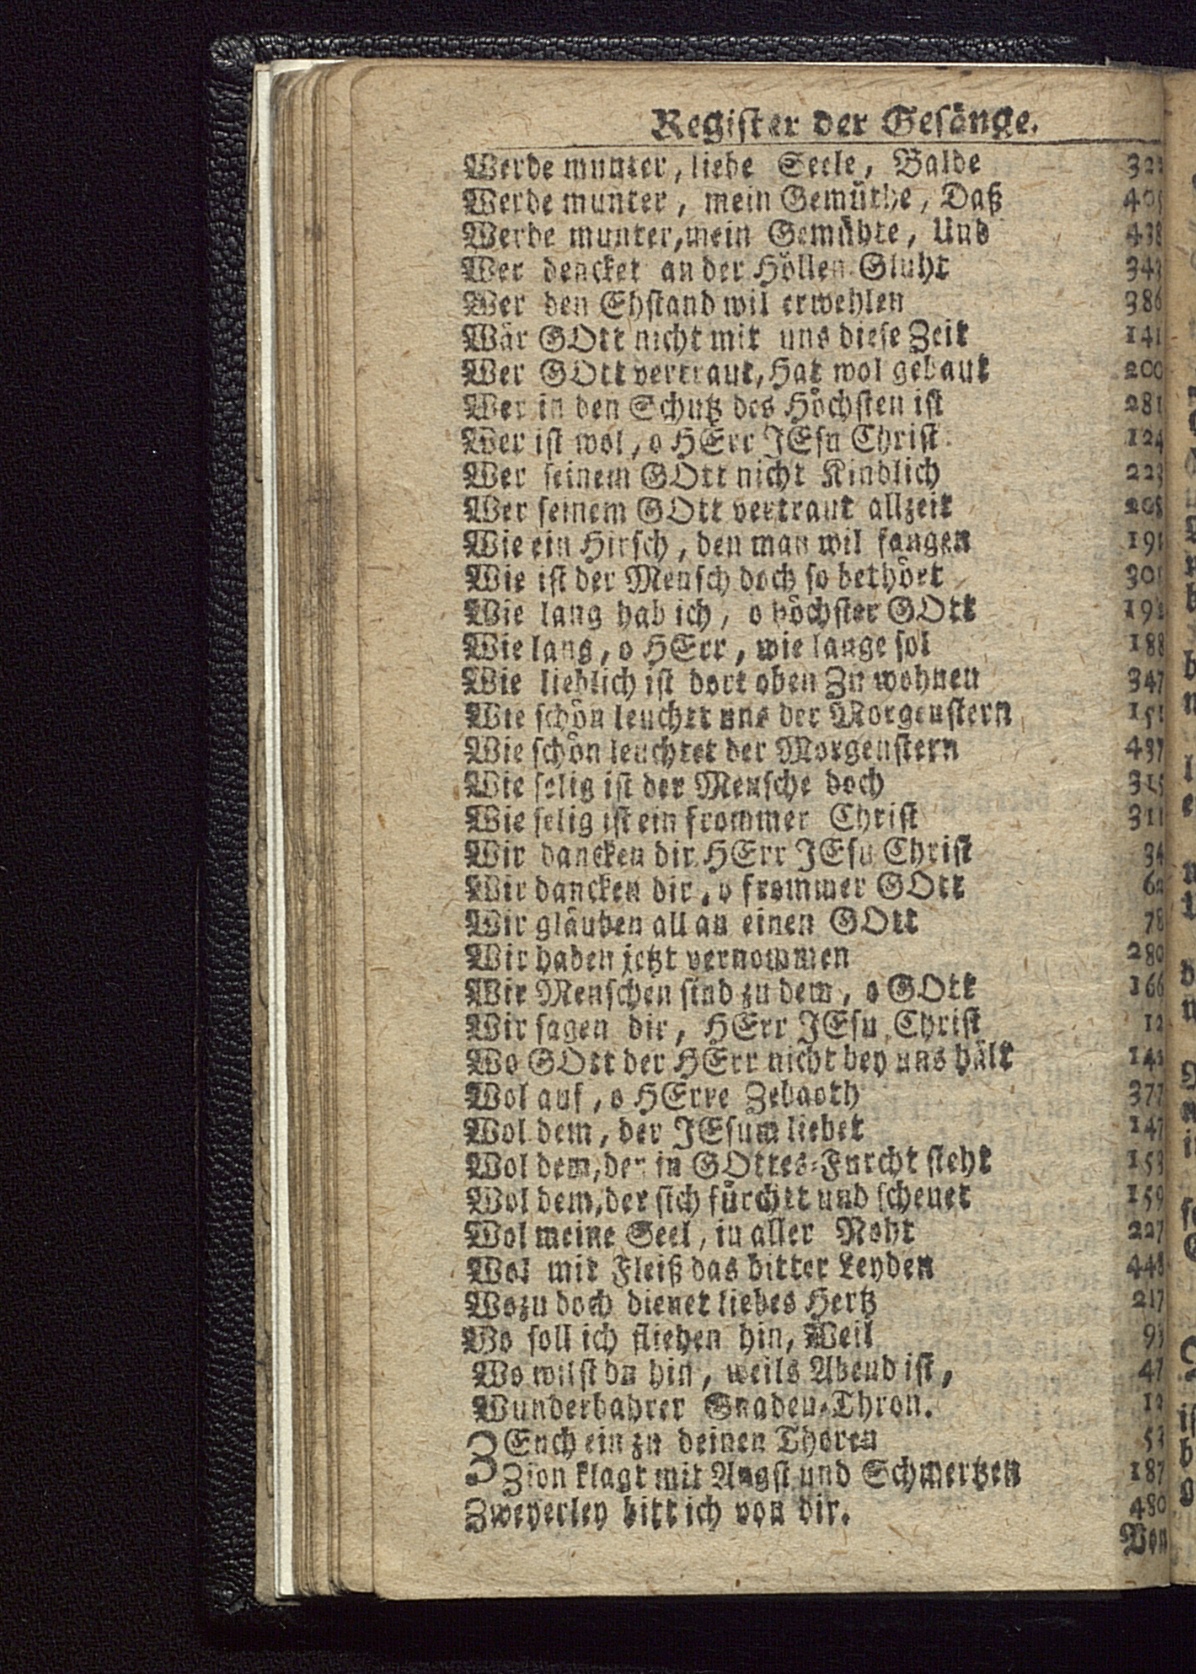 Register der Gesänge.
Werde munter, liebe Seele, Balde 322
Werde munter, mein Gemüthe, Daß 405
Werde munter, mein Gemühte, Und 438
Wer dencket an der Höllen-Gluht 343
Wer den Ehstand wil erwehlen 386
Wär GOtt nicht mit uns diese Zeit 141
Wer GOtt vertraut, Hat wol gebaut 200
Wer in den Schutz des Höchsten ist 281
Wer ist wol, o HErr JEsu Christ 124
Wer seinem GOtt nicht Kindlich 223
Wer seinem GOtt vertraut allzeit 205
Wie ein Hirsch, den man wil fangen 191
Wie ist der Mensch doch so bethört 301
Wie lang hab ich, o höchster GOtt
Wie lang, o HErr, wie lange sol 188
Wie lieblich ist dort oben Zu wohnen 347
Wie schön leucht uns der Morgenstern 151
Wie schön leuchtet der Morgenstern 437
Wie selig ist der Mensche doch 315
Wie selig ist ein frommer Christ 311
Wir dancken dir HErr JEsu Christ 34
Wir dancken dir, o frommer GOtt
Wir gläuben all an einen GOtt 78
Wir haben jetzt vernommen 280
Wir Menschen sind zu dem, o GOtt 166
Wir sagen dir, HErr JEsu Christ 12
Wo GOtt der HErr nicht bey uns hält
Wol auf, o HErre Zebaoth 377
Wol dem, der JEsum liebet 147
Wol dem, der in GOttes-Furcht steht 153
Wol dem, der sich fürchtt und scheuet 159
Wol meine Seel, in aller Noht 227
Wol mit Fleiß das bitter Leyden 448
Wozu doch dienet liebes Hertz 217
Wo soll ich fliehen hin, Weil 93
Wo wilst du hin, weils Abend ist, 47
Wunderbahrer Gnaden-Thron. 12
ZEuch ein zu deinen Thoren 53
Zion klagt mit Angst und Schmertzen 187
Zweyerley bitt ich von dir. 480
Von